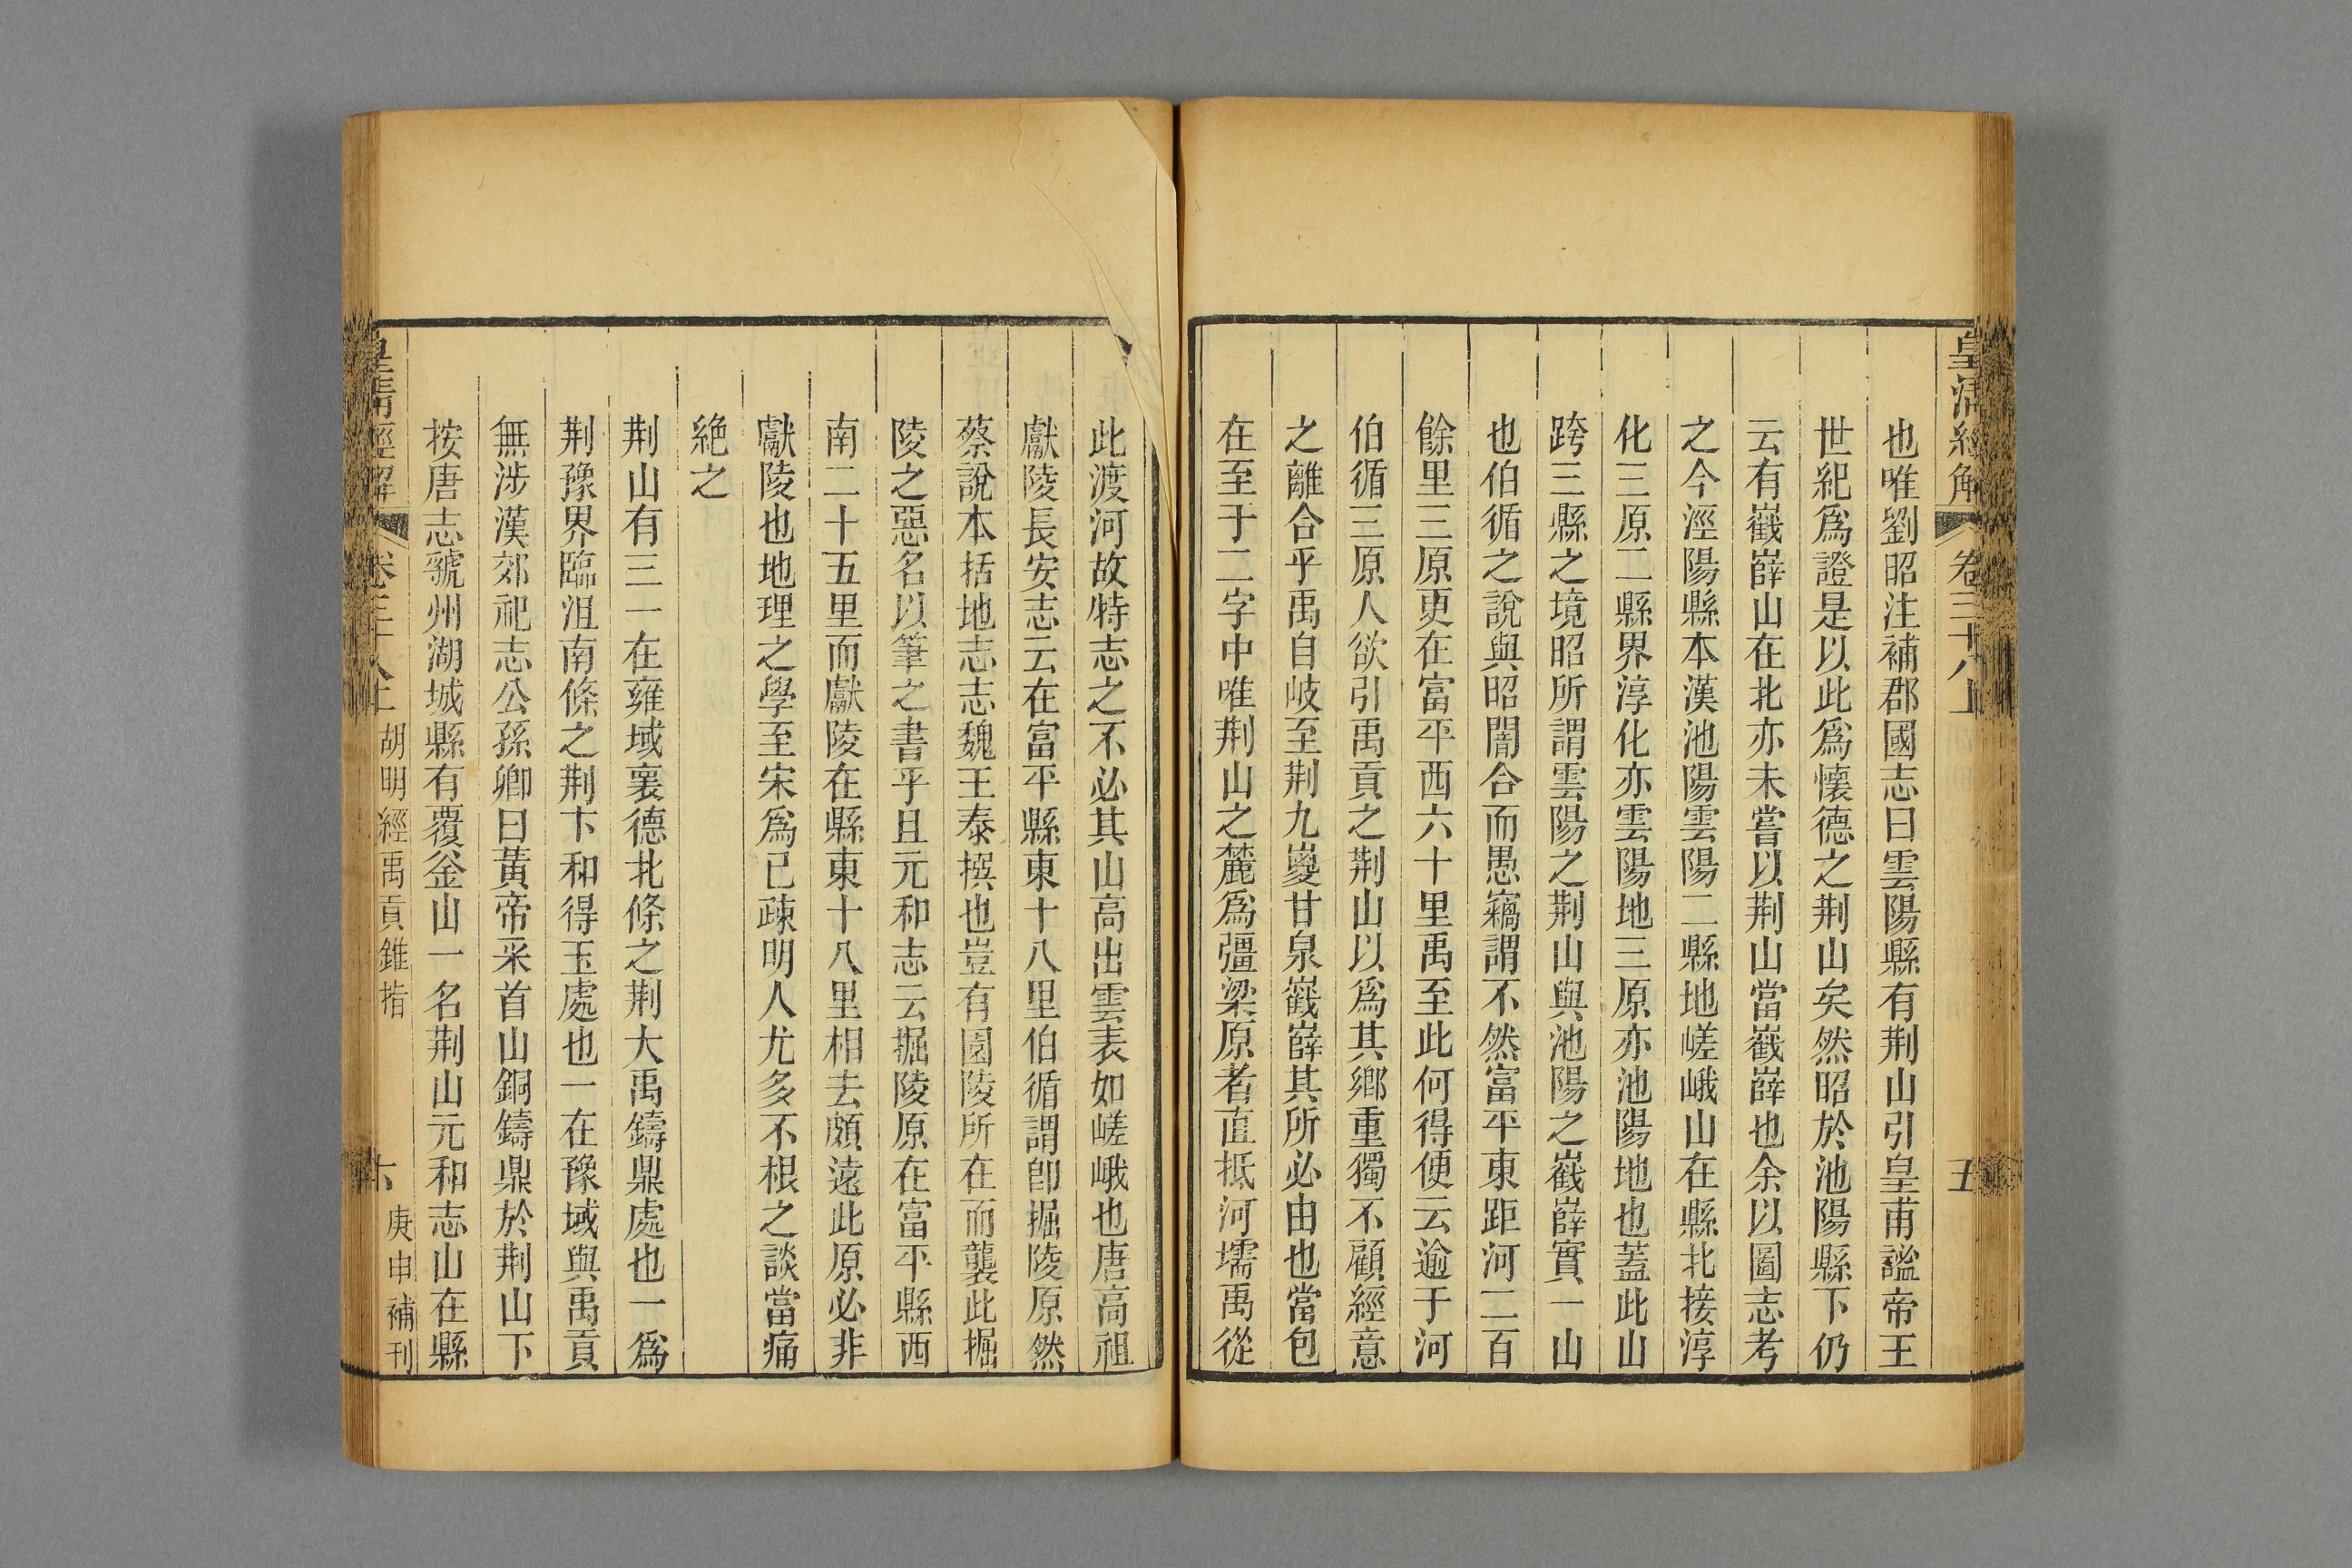 皇清經解
卷三十八上
五
也唯劉昭注補郡國志曰雲陽縣有荆山引皇甫謐帝王
世紀爲證是以此爲懷德之荆山矣然昭於池陽縣下仍
云有嶻嶭山在北亦未嘗以荆山當嶻嶭也余以圖志考
之今涇陽縣本漢池陽雲陽二縣地嵯峨山在縣北接淳
化三原二縣界淳化亦雲陽地三原亦池陽地也蓋此山
跨三縣之境昭所謂雲陽之荆山與池陽之嶻嶭實一山
也伯循之說與昭闇合而愚竊謂不然富平東距河二百
餘里三原更在富平西六十里禹至此何得便云逾于河
伯循三原人欲引禹貢之荆山以爲其鄉重獨不顧經意
之離合乎禹自岐至荆九嵕甘泉嶻嶭其所必由也當包
在至于二字中唯荆山之麓爲彊梁原者直抵河壖禹從
此渡河故特志之不必其山高出雲表如嵯峨也唐高祖
獻陵長安志云在富平縣東十八里伯循謂卽掘陵原然
蔡說本括地志志魏王泰撰也豈有園陵所在而襲此掘
陵之惡名以筆之書乎且元和志云掘陵原在富平縣西
南二十五里而獻陵在縣東十八里相去頗遠此原必非
獻陵也地理之學至宋爲已疎明人尤多不根之談當痛
絕之
荆山有三一在雍域襄德北條之荆大禹鑄鼎處也一爲
荆豫界臨沮南條之荆卞和得玉處也一在豫域與禹貢
無涉漢郊祀志公孫卿曰黃帝采首山銅鑄鼎於荆山下
按唐志虢州湖城縣有覆釜山一名荆山元和志山在縣
皇清經解
卷三十八上
胡明經禹貢錐指
六
庚申補刊